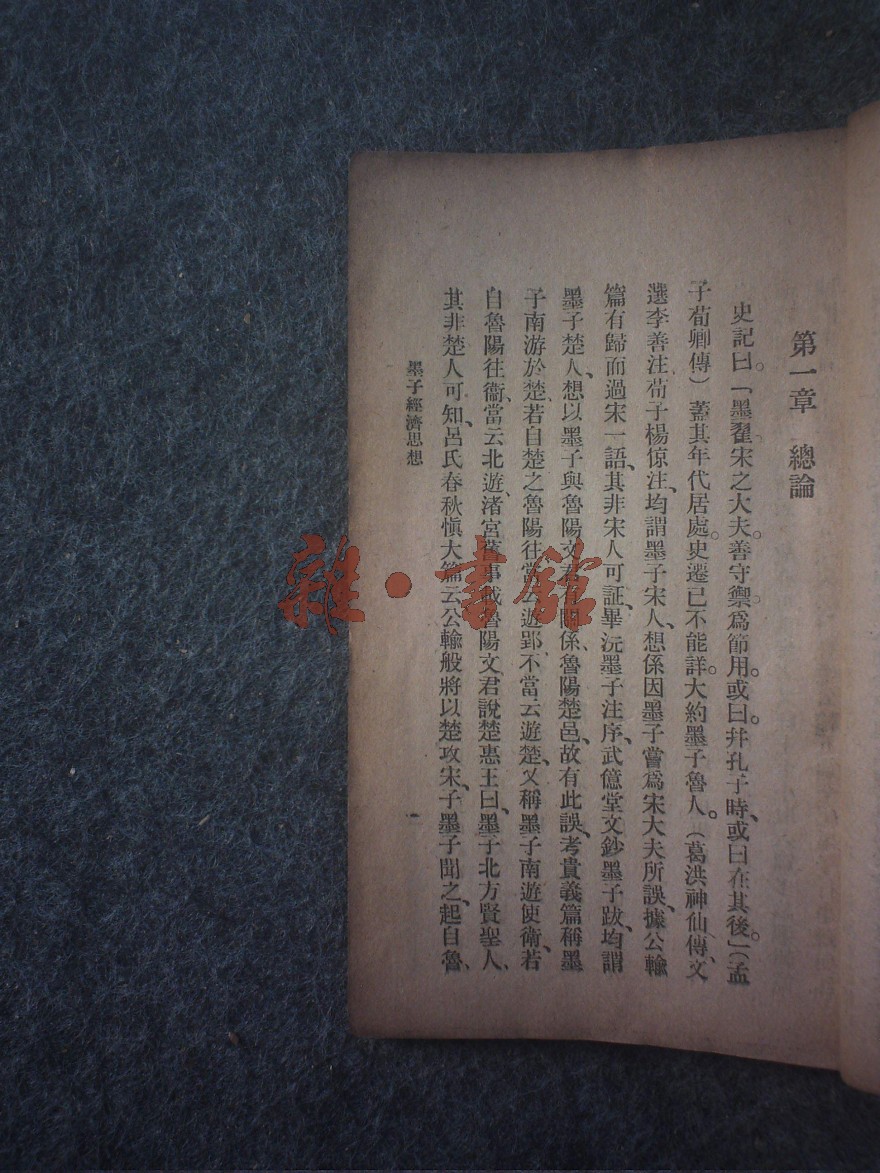 第一章　總論
史記曰。「墨翟。宋之大夫。善守禦。爲節用。或曰。幷孔子時、或曰在其後。」（孟
子荀卿傳）蓋其年代居處。史遷已不能詳。大約墨子魯人。（葛洪神仙傳、文
選李善注、荀子楊倞注、均謂墨子宋人、想係因墨子嘗爲宋大夫所誤、據公輸
篇有歸而過宋一語、其非宋人可証、畢沅墨子注序、武億堂文鈔墨子跋、均謂
墨子楚人、想以墨子與魯陽文君有關係、魯陽楚邑、故有此誤、考貴義篇稱墨
子南游於楚、若自楚之魯陽往、當云遊郢、不當云遊楚、又稱墨子南遊使衛、若
自魯陽往衞、當云北遊、渚宮舊事載魯陽文君說楚惠王曰、墨子北方賢聖人、
其非楚人可知、呂氏春秋愼大篇云公輸般將以楚攻宋、子墨子聞之、起自魯、
墨子經濟思想
一
雜·書館